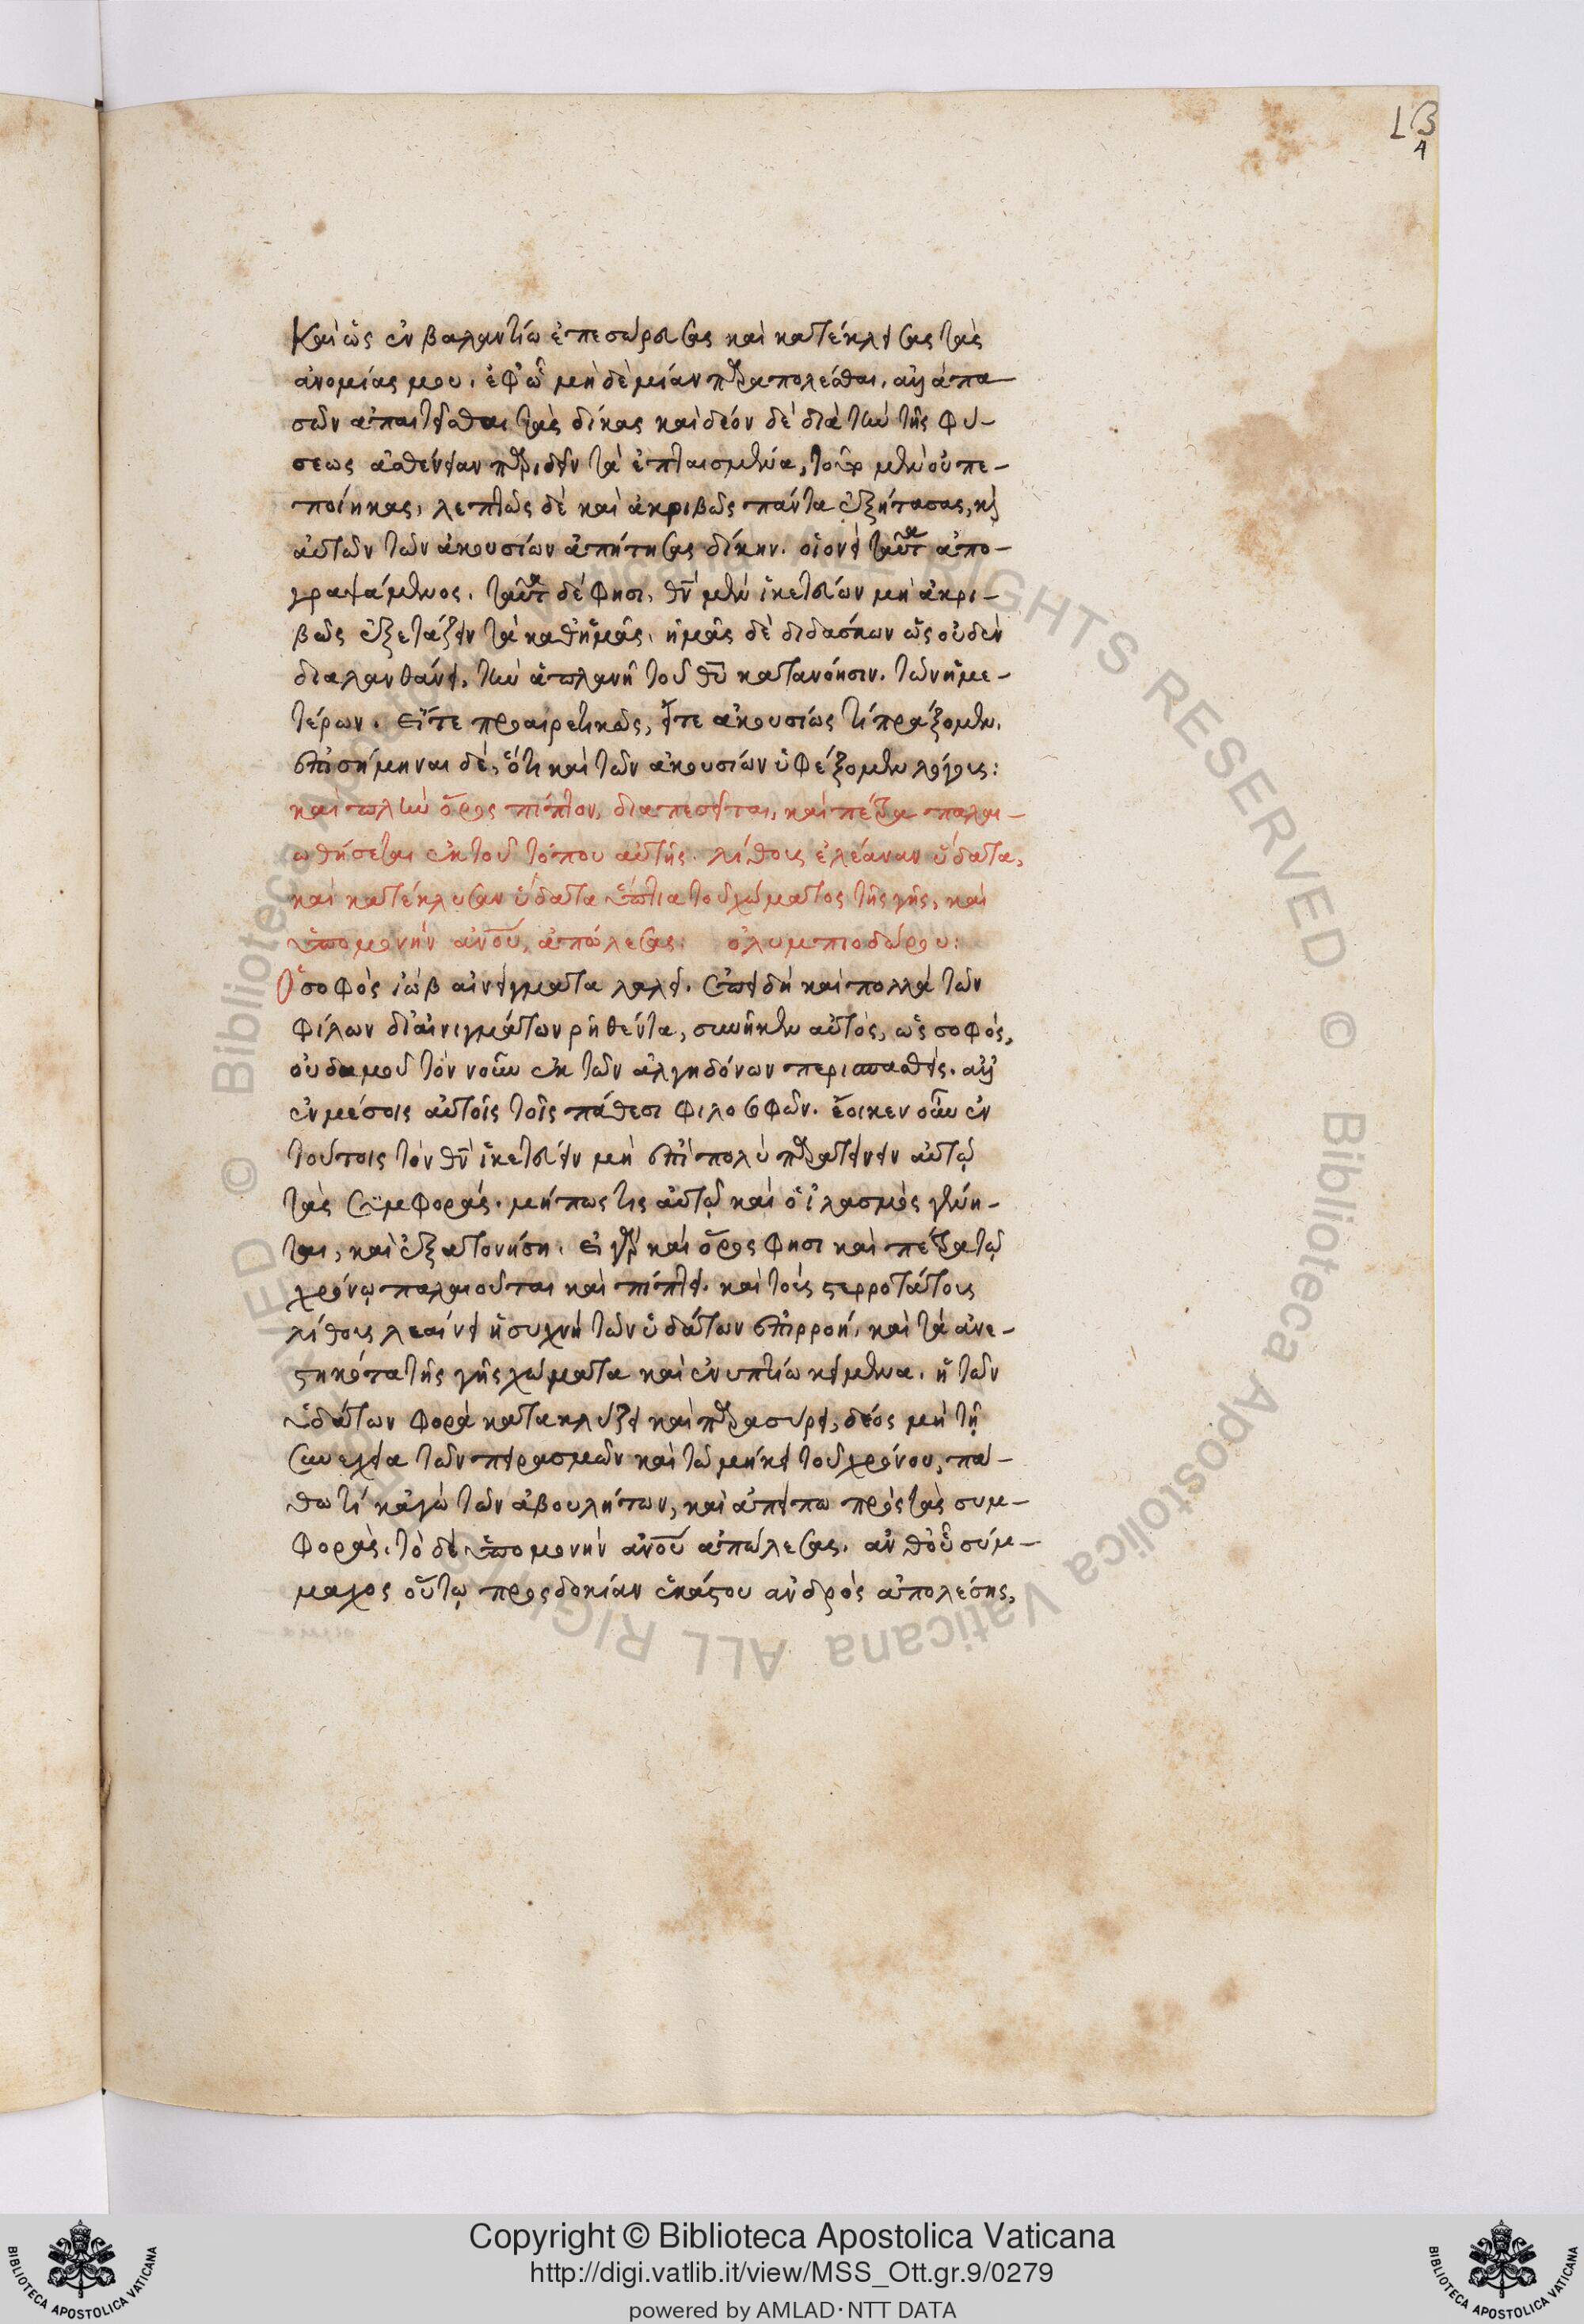 LB
4
καὶ ὡς ἐν βαλαντίω ἐπεσώρευσας καὶ κατέκλεισας τὰς
ἀνομίας μου. ἐφ' ᾧ μὴ δὲ μίαν παραπολέσθαι, ἀλλ' ἁπα-
σῶν ἀπαιτεῖσθαι τὰς δίκας καὶ δέον δὲ διὰ τὴν τῆς φύ-
σεως ἀσθένειαν παριδεῖν τὰ ἐπταισμένα, τοῦτο μὲν οὐ πε-
ποίηκας, λεπτῶς δὲ καὶ ἀκριβῶς πάντα ἐξήτασας, κ
αὐτῶν τῶν ἀκουσίων ἀπήτησας δίκην. οἱονεὶ ταῦτα ἀπο-
γραψάμενος. ταῦτα δέ φησι, θν μὲν ἱκετεύων μὴ ἀκρι-
βῶς ἐξετάζειν τὰ καθ' ἡμᾶς, ἡμᾶς δὲ διδάσκων ὡς οὐδὲν
διαλανθάνει, τὴν ἀπλανῆ τοῦ θυ κατανόησιν. τῶν ἡμε-
τέρων. εἴτε προαιρετικῶς, εἴτε ἀκουσίως τί πράξομεν.
ἐπισήμηναι δὲ, ὅτι καὶ τῶν ἀκουσίων ὑφέξομεν λόγους:
καὶ πλὴν ὄρος πίπτον, διαπεσεῖται, καὶ πέτρα παλαι-
ωθήσεται ἐκ τοῦ τόπου αὐτῆς. λίθους ἐλέαναν ὕδατα,
καὶ κατέκλυσαν ὕδατα ὕπτια τοῦ χώματος τῆς γῆς, καὶ
ὑπομονὴν ἀνου, ἀπώλεσας: ὀλυμπιοδώρου:
Ὁ σοφὸς ἰὼβ αἰνίγματα λαλεῖ. ἐπειδὴ καὶ πολλὰ τῶν
φίλων δι' αἰνιγμάτων ῥηθέντα, συνῆκεν αὐτὸς, ὡς σοφός,
οὐδαμοῦ τὸν νοῦν ἐκ τῶν ἀλγηδόνων περισπασθείς. ἀλλ'
ἐν μέσοις αὐτοῖς τοῖς πάθεσι φιλοσοφῶν. ἔοικεν οὖν ἐν
τούτοις τὸν θν ἱκετεύειν μὴ ἐπὶ πολὺ παρατείνειν αὐτῷ
τὰς συμφοράς. μήπως τις αὐτῷ καὶ ὀϊλασμὸς γένη-
ται, καὶ ἐξατονήση. εἰ γὰρ καὶ ὄρος φησι καὶ πέτρα τῷ
χρόνῳ παλαιοῦται καὶ πίπτει. καὶ τοὺς στερροτάτους
λίθους λεαίνει ἡ συχνὴ τῶν ὑδάτων ἐπιρροή, καὶ τὰ ἀνε-
στηκότα τῆς γῆς χώματα καὶ ἐν υπτίω κείμενα. ἡ τῶν
ὑδάτων φορὰ κατακλύζει καὶ παρασύρει, δέος μὴ τῇ
συνεχεία τῶν πειρασμῶν καὶ τῶ μήκει τοῦ χρόνου, πά-
θω τί κἀγὼ τῶν ἀβουλήτων, καὶ ἀπείπω πρὸς τὰς συμ-
φορὰς. τὸ δὲ ὑπομονὴν ἀνου ἀπώλεσας. ἀνθ' οὗ σύμ-
μαχος οὕτω προσδοκίαν ἑκάστου ἀνδρὸς ἀπολέσης,
Copyright © Biblioteca Apostolica Vaticana
http://digi.vatlib.it/view/MSS_Ott.gr.9/0279
powered by AMLAD·NTT DATA